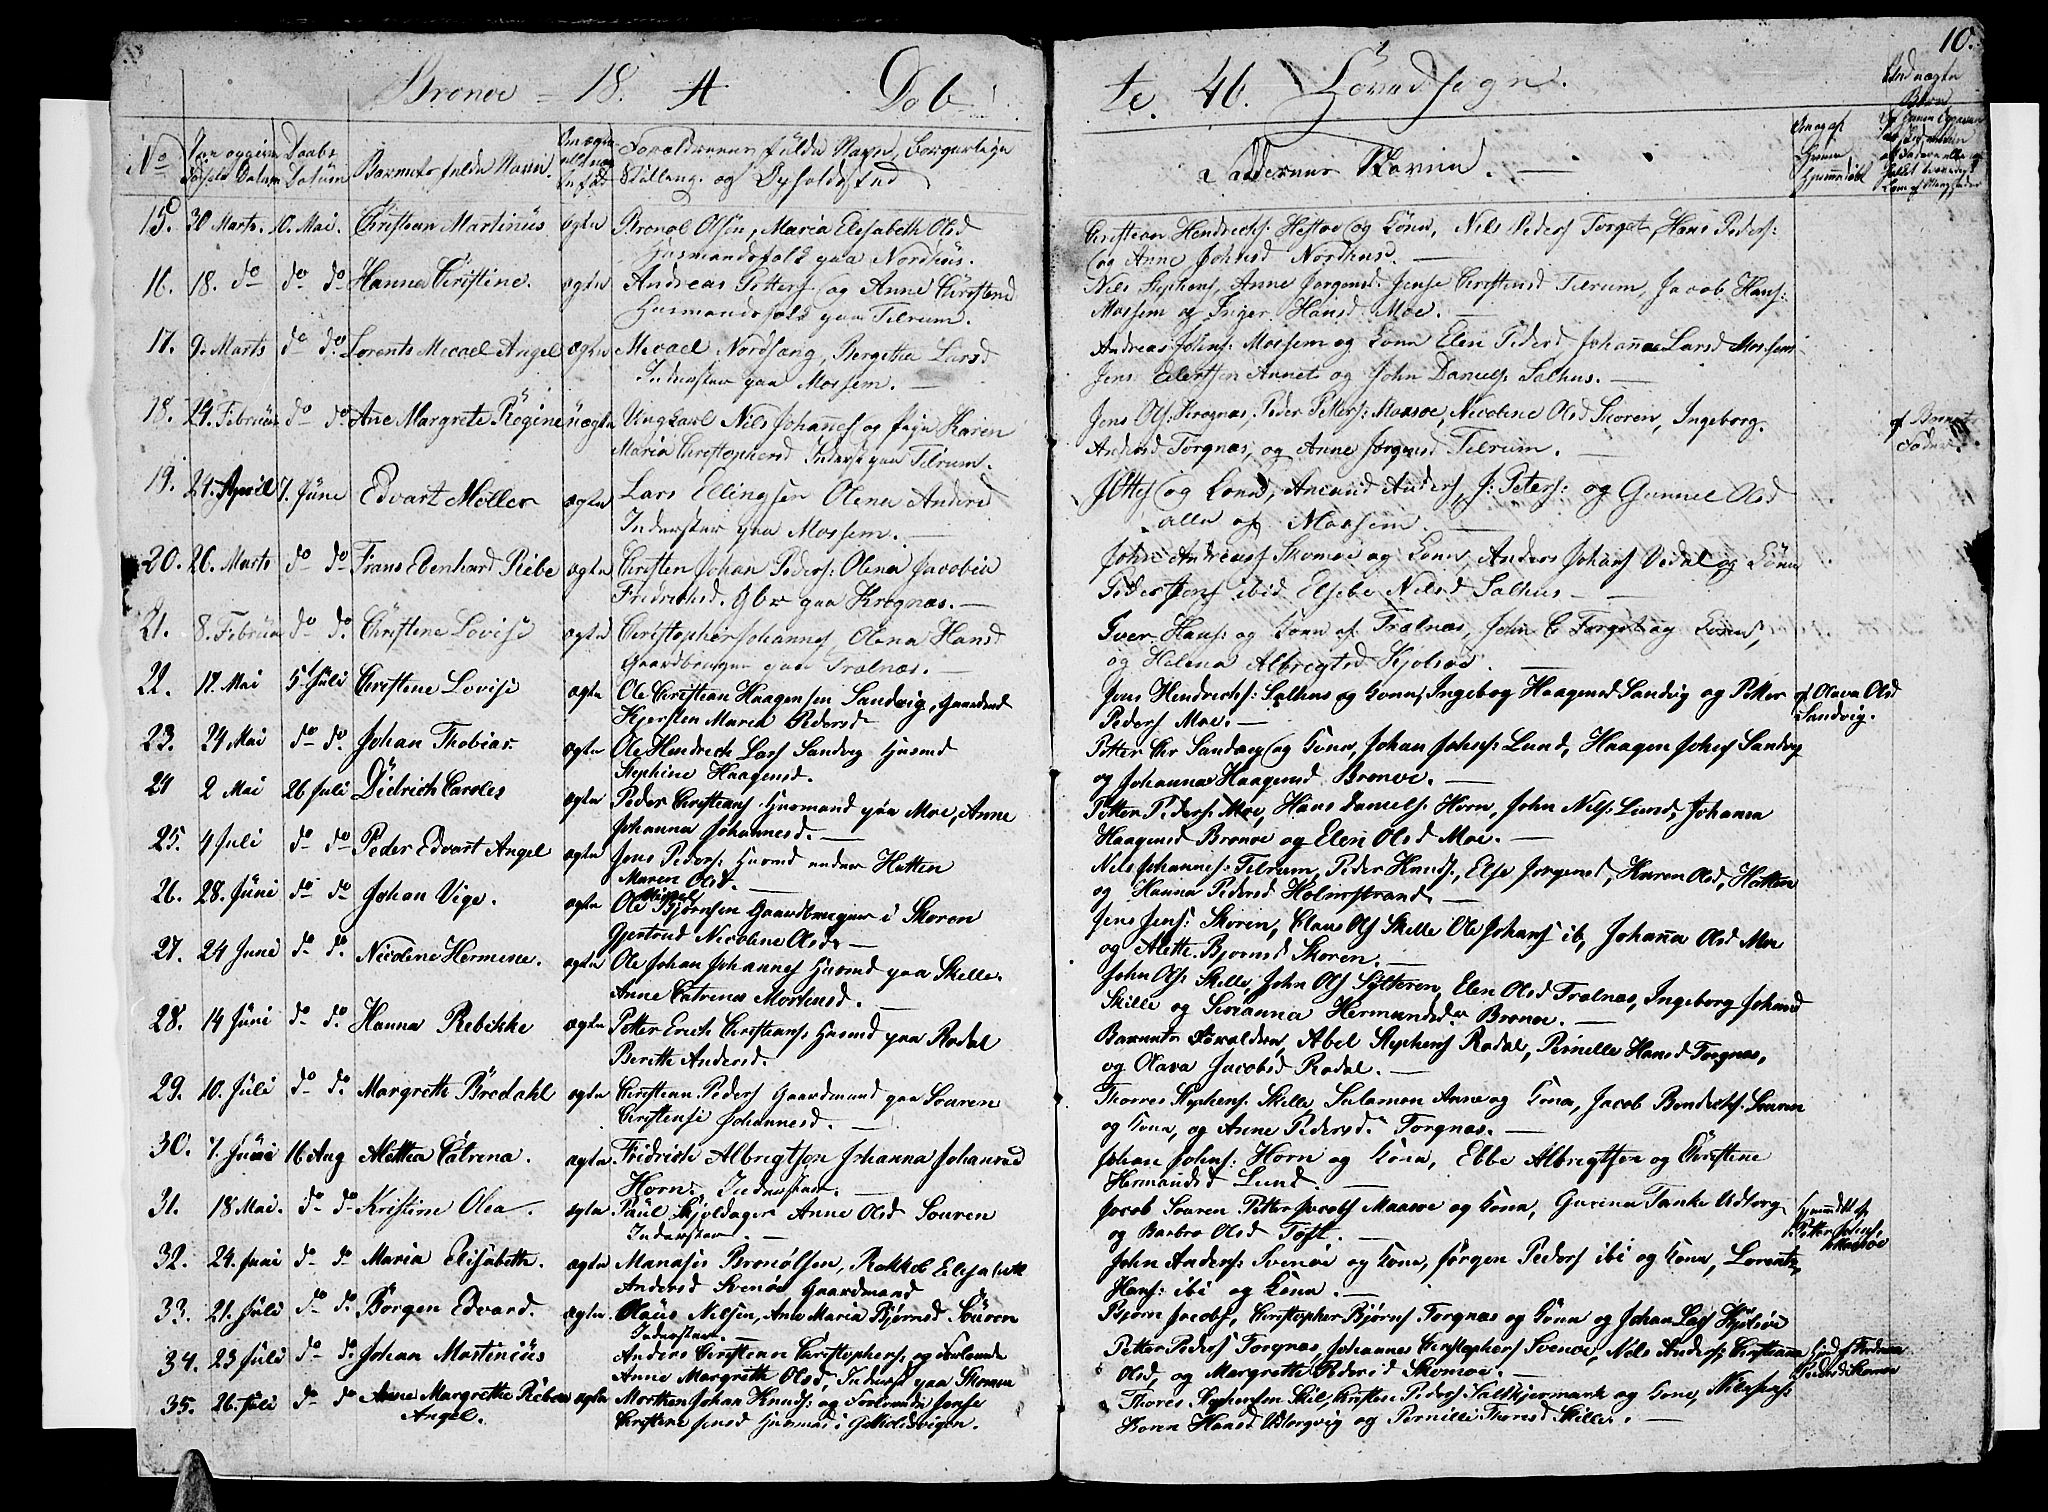 10.
Brönöe - 18. A Dob
te. 46. Hovedsogn.
No Barnets fulde Navn. Forældrenes fulde Navn, borgerlige
Datum Datum Stilling og Opholdsted
Faddernes Navne. —
15. 30 Marts. 10. Mai. Christian Martinus ægte Bronol Olsen, Maria Elisabeth Olsd
Huusmandsfolk paa Nordhüs.
Christian Hendrichs: Hestøe og Kone, Nils Peders Torget, Hans Peders:
og Anne Johnsd Nordhus. —
16. 18. do do do Hanna Christine. ægte Andreas Petters og Anne Christend
Husmandsfolk paa Tilrum.
Nils Stephens, Anne Jørgensd. Jense Christensd Tilrum, Jacob Hans:
Mossem og Inger Hansd Moe. —
17. 9. Marts do do. Lorents Micael Angel ægte Micael Nordsang, Bergithe Larsd
Inderster paa Mossem. —
Andreas Johns: Mossem og Kone Elen Pedersd Johanna Larsd Mossem
Jens Eilertsen Annet og John Daniels Salhus. —
18. 24. Februar do do Ane Margrete Regine uægte Ungkarl Nils Johannes og Pige Karen
Maria Christophersd Inderst paa Tilrum.
Jens Ols: Krognæs, Peder Petters: Maasøe, Nicoline Olsd Skoren, Ingeborg
Andersd Torgnæs, og Anne Jørgensd Tilrum. —
af Barnets
Fader
19. 24. April 7. Jüne Edvart Möller ægte Lars Ellingsen Olena Andersd
Inderster paa Mossem. —
J Ottes og Kone, Amund Anders, J: Peters: og Gunnel Olsd
alle af Mossem. —
20. 26. Marts do do Frans Ebenhard Ribe ægte Christen Johan Peders: Olena Jacobia
Fridrichsd. Gbr paa Krognæs. —
John Andreass Skomoe og Kone, Anders Johans Vedal og Kone
Peder Jens ibid Elsebe Nilsd Salhus —
21. 8. Februar do do. Christine Lovise ægte Christopher Johannes Olena Hansd
Gaardbruger paa Trælnæs. —
Iver Hans: og Kone af Trælnæs, John C Torget og Kone,
og Helena Albregtsd Kjølsøe. —
22. 17. Mai 5. Juli Christine Lovise ægte Ole Christian Haagensen Sandvig, Gaardmd
Kjersten Maria Pedersd
Jens Hendrichs: Salhus og Kone, Ingeborg Haagensd Sandvig og Petter
Peders Moe. —
af Olava Olsd
Sandvig.
23. 24 Mai do do. Johan Thobias. ægte Ole Hendrich Lars Sandvig Husmd
Stephine Haagensd.
Petter Chr Sandvig og Kone, Johan Johns: Lund, Haagen Johns Sandvig
og Johanna Haagensd Brønøe. —
24 2 Mai 26 Juli Didrich Caroles ægte Peder Christians Husmand paa Moe, Anne
Johanna Johannesd. —
Petter Peders: Moe, Hans Daniels: Horn, John Nils: Lund, Johanna
Haagensd Brønøe og Elen Olsd Moe. —
25. 4 Juli do do Peder Edvart Angel ægte Jens Peders: Husmd under Hatten
Maren Olsd. —
Nils Johannes: Tilrum, Peder Knuds:, Else Jørgensd, Karen Olsd, Hatten
og Hanna Pedersd Holmstrand —
26. 28. Jüni do do Johan Vige. ægte Ole Bjørnsen Gaardbruger i Skoren
Gjertrud Nicoline Olsd. —
Jens Jens: Skoren, Claus Ols Skille Ole Johans ib, Johanna Olsd Moe
og Alette Bjørnsd Skoren. —
27. 24 Juni do do. Nicoline Hermine. ægte Ole Johan Johannes Husmd paa Skille.
Anne Catrina Mortensd. —
John Ols: Skille, John Ols Sylteren, Elen Olsd Trælnæs, Ingeborg Johansd
Skille og Sirianna Hermundsd Brønøe. —
28. 14 Jüni do do. Hanna Rebekke ægte Petter Erich Christians: Husmd paa Rodal
Berith Andersd.
Barnets Forældre, Abel Stephens Rodal, Pernille Hansd Torgnæs,
og Olava Jacobsd Rodal. —
29. 10. Juli do do. Margrethe Bredahl ægte Christian Peders Gaardmand paa Souren
Christense Johannesd. —
Thorres Stephens: Skille Salamon Anne og Kone, Jacob Bendichs: Souren
og Kone, og Anne Pedersd. Torgnæs. —
30. 7. Jüni 16 Aug Alettha Catrina. ægte Fridrich Albregtsen Johanna Johansd
Horn. Inderster. —
Johan Johns: Horn og Kone, Ebbe Albregtsen og Christine
Hermansd Lund. —
31. 18 Mai. do do Kristine Olea. ægte Paul Skjoldager Anne Olsd Souren
Inderster. —
Jacob Souren Petter Jacobs Maasøe og Kone, Gurina Tanke Udtorg
og Barbro Olsd Toft. —
Hjemdbt af
Petter Johns,
Maasøe
32. 24. Juni do do Maria Elisabeth. ægte Manases Bronolsen, Rakkel Elisabeth
Andersd Svenøe Gaardmand
John Anders: Svenøe og Kone, Jørgen Peders ibi og Kone, Lorents
Hans: ibi og Kone. —
33. 21. Juli do do. Börgen Edvard. ægte Olaüs Nilsen, Ane Maria Bjørnsd Souren
Inderster. —
Bjørn Jacobs, Christopher Bjørns Torgnæs og Kone og Johan Lars Kjølsøe
34. 23 Juli do do. Johan Martinius ægte Anders Christian Christophers: og Forlovede
Anne Margreth Olsd, Inderst paa Skomoe
Petter Peders Torgnæs, Johannes Christophers Svenøe, Nils Anders, Christianna
Olsd, og Margrethe Pedersd Skomoe. —
35. 26. Juli do do Anne Margrethe Ribe ægte Morthen Johan Knuds: og Forlovede Jense
Angel. Christine Jensd Husmand i Gottholdsvigen.
Thores Stephensen Skil, Christen Peders: Saltkjermark og Kone, Nils Jens:
Karen Hansd Udtorgvig og Pernille Thorsd Skille. —